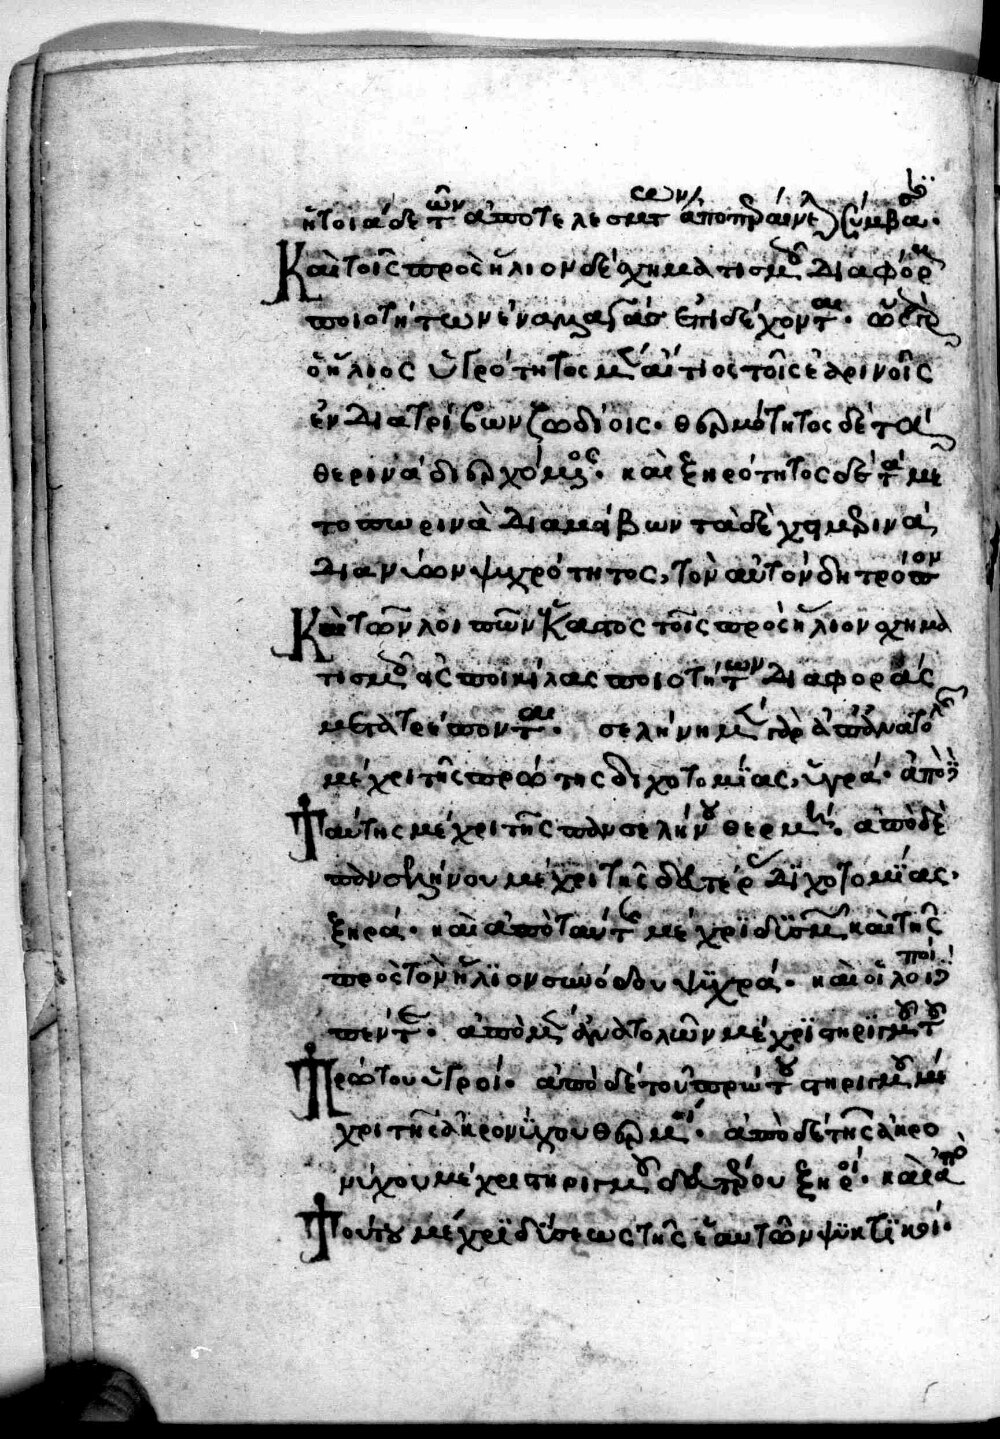 ἤτοιάδε τῶν ἀποτελεσμάτων ἀποπεραίνεσθαι συμβαίνει.
Καὶ τοῖς πρὸς ἥλιον δὲ σχηματισμοῖς διαφόρων
ποιοτήτων ἐναλλαγὰς ἐπιδέχονται. ὥσπερ
ὁ ἥλιος ὑγρότητος μὲν αἴτιος τοῖς ἐαρινοῖς
ἐνδιατρίβων ζωδίοις. θερμότητος δὲ τὰ
θερινὰ διερχόμενος. καὶ ξηρότητος δὲ τὰ με
τοπωρινὰ διαμείβων τὰ δὲ χειμερινὰ
διανύων ψυχρότητος, τὸν αὐτὸν δὴ τρόπον
Καὶ τῶν λοιπῶν ἕκαστος τοῖς πρὸς ἥλιον σχημα
τισμοῖς εἰς ποικίλας ποιοτήτων διαφορὰς
μετατρέπονται. σελήνη μὲν γὰρ ἀπὸ ἀνατολῆς
μέχρι τῆς πρώτης διχοτομίας, ὑγρά. ἀπὸ
Ταύτης μέχρι τῆς πανσελήνου θερμή. ἀπὸ δὲ
πανσελήνου μέχρι τῆς δευτέρας διχοτομίας.
ξηρά. καὶ ἀπὸ ταύτης μέχρι δύσεως καὶ τῆς
πρὸς τὸν ἥλιον συνόδου ψυχρά. καὶ οἱ λοιποὶ
πέντε. ἀπὸ μὲν ἀνατολῶν μέχρι στηριγμοῦ τοῦ
Πρώτου ὑγροί. ἀπὸ δὲ τοῦ πρώτου στηριγμοῦ μέ
χρι τῆς ἀκρονύχου θερμοί. ἀπὸ δὲ τῆς ἀκρο
νύχου μέχρι στηριγμοῦ δευτέρου ξηροί. καὶ ἀπὸ
Τούτου μέχρι δύσεως τῆς ἑαυτῶν ψυκτικοί.